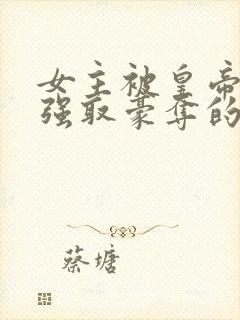 女主被皇帝
强取豪夺的
蔡塘